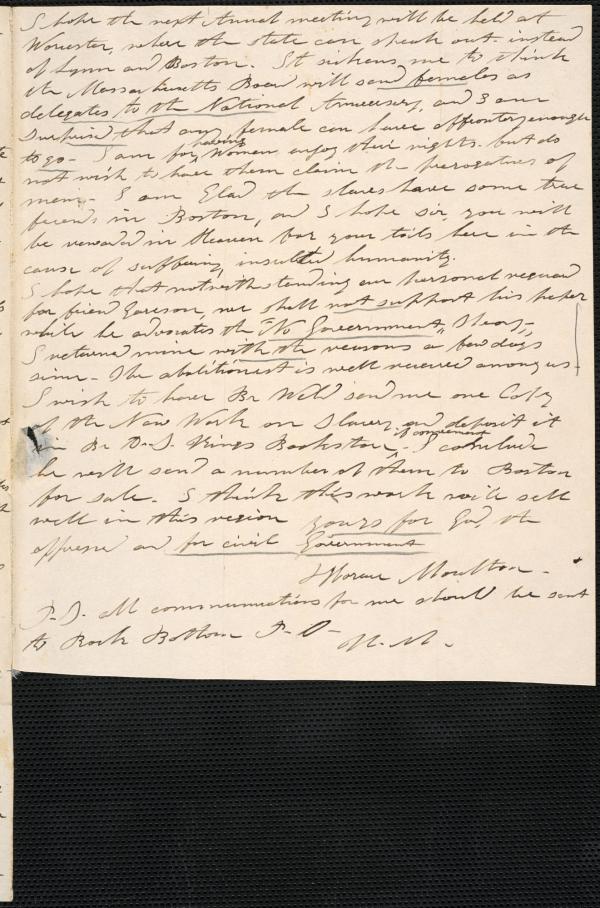 I hope the next Annual meeting will be held at
Worcester, where the state can speak out instead
of Lynn and Boston. It sickens me to think
the Massachusetts Board will send females as
delegates to the National Anniversary, and I am
Surprised that any female can have effrontery enough
to go - I am for having Women enjoy their rights. but do
not wish to have them claim the prerogatives of
men. - I am Glad the slaves have some true
friends in Boston, and I hope sir, you will
be rewarded in Heaven for your toils here in the
cause of suffering, insulted humanity.
I hope that notwithstanding our personal regard
for friend Garrison, we shall not support his paper
while he advocates the "No Government" Theory,
I returned mine with the reasons a few days
since - The abolitionist is well received among us -
I wish to have Br Weld send me one Copy
of the New Work on Slavery, and deposit it
in Br D. S. Kings Bookstore, if convenient - I conclude
he will send a number of them to Boston
for sale. I think this work will sell
well in this region yours for God the
oppressed and for civil Government
Horace Moulton -
P. S. all communications for me should be sent
to Rock Bottom P. O - H. M.